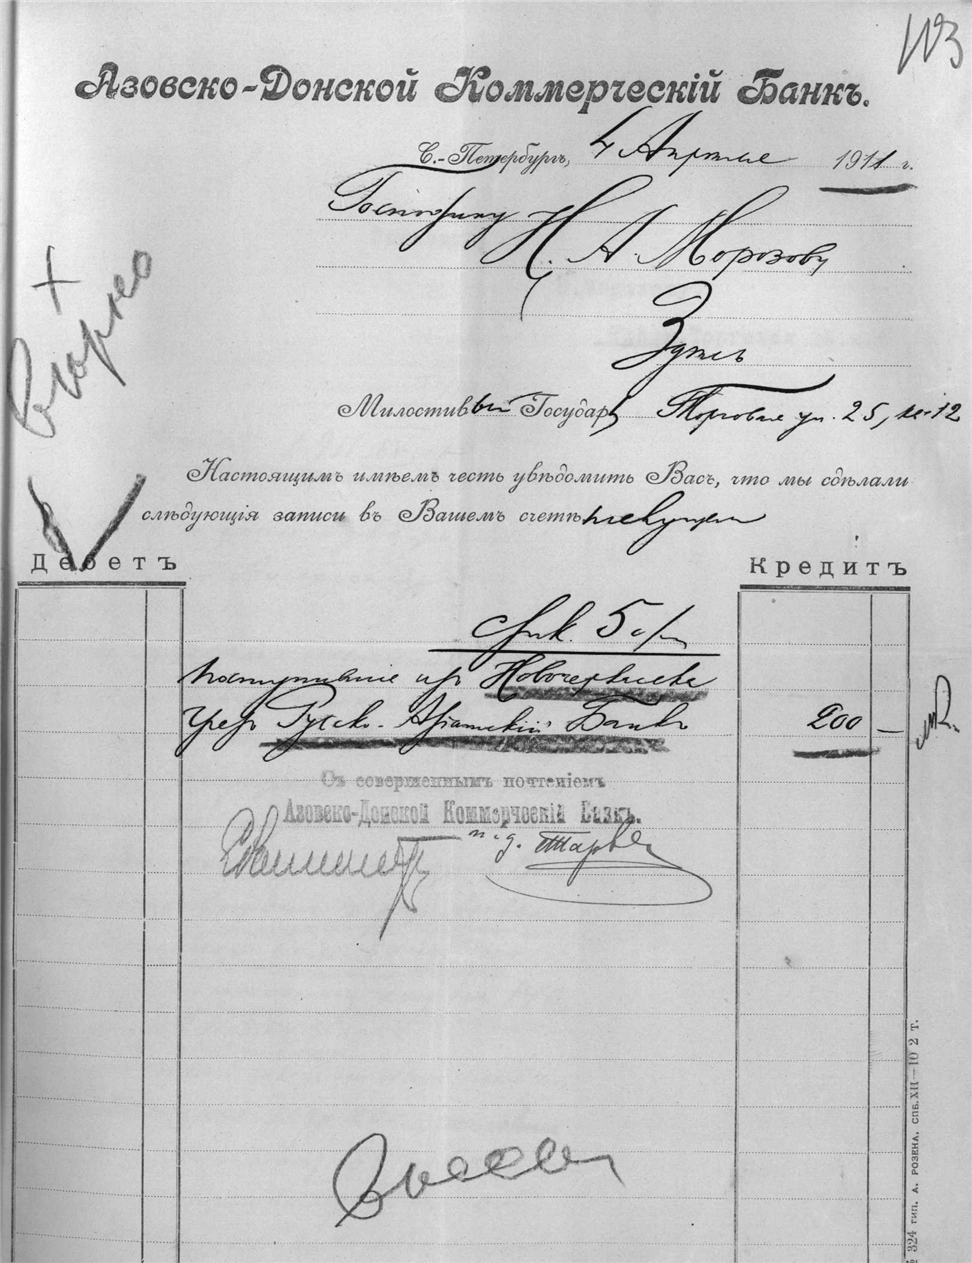 №3
Азовско-Донской Коммерческій Банкъ.
С.-Петербургъ, 4 Апрѣля 1911 г.
Господину Н. А. Морозову
Здѣсь
Милостивый Государь Торговая ул. 25, кв. 12
Настоящимъ имѣемъ честь увѣдомить Васъ, что мы сдѣлали
слѣдующія записи въ Вашемъ счетѣ текущемъ
Дебетъ
Кредитъ
5
поступившіе изъ Новочеркасска
чрезъ Русско-Азіатскій Банкъ 200 —
Съ совершеннымъ почтеніемъ
Азовско-Донской Коммерческій Банкъ.
№ 324 тип. А. РОЗЕНА. СПБ. XII—10 2 т.